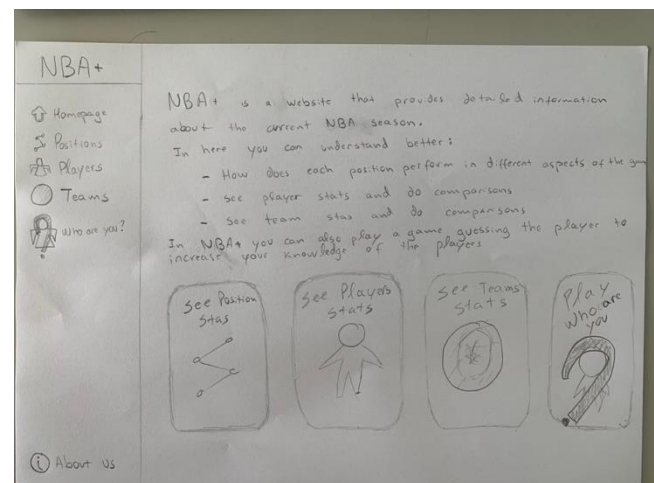 NBA+
Homepage
Positions
Players
Teams
Who are you?
About us
NBA+ is a website that provides detailed information
about the current NBA season.
In here you can understand better:
- How does each position perform in different aspects of the gam
- see player stats and do comparisons
- see team stas and do comparisons
In NBA+ you can also play a game guessing the player to
increase your knowledge of the players
See Position
stas
See Players
stats
See Teams
stats
Play
who are
you